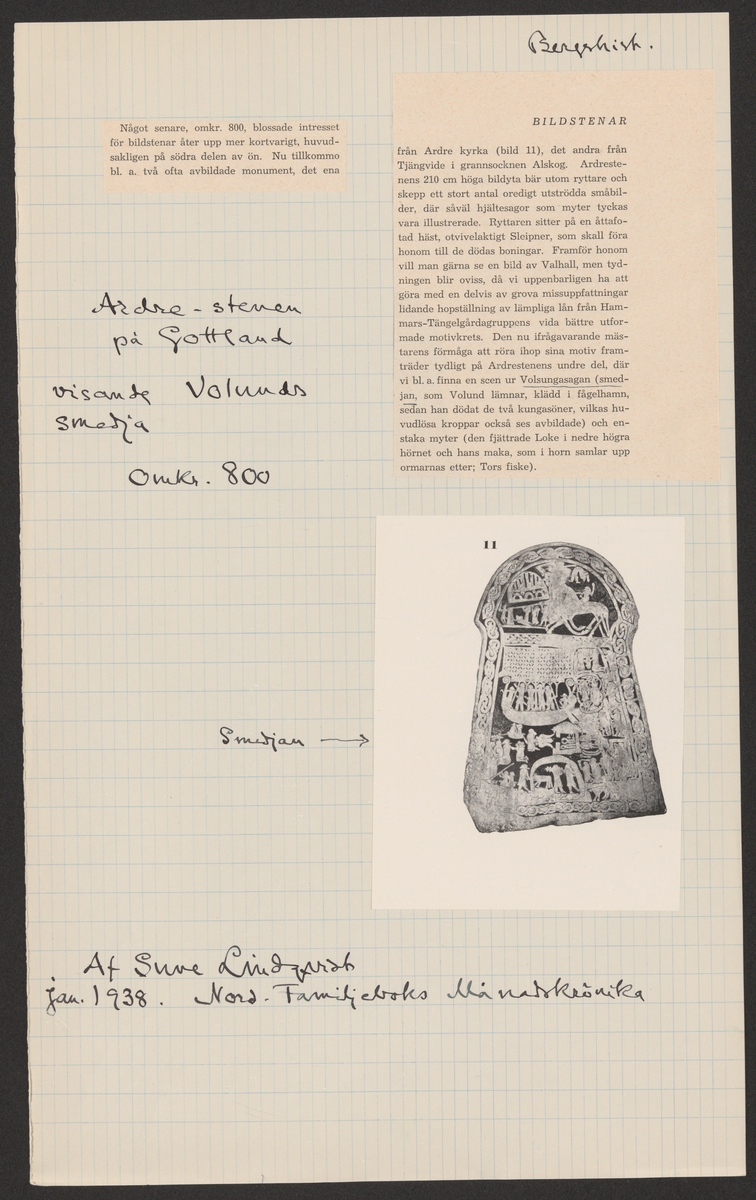 Bergshist.
Något senare, omkr. 800, blossade intresset
för bildstenar åter upp mer kortvarigt, huvud-
sakligen på södra delen av ön. Nu tillkommo
bl. a. två ofta avbildade monument, det ena
BILDSTENAR
från Ardre kyrka (bild 11), det andra från
Tjängvide i grannsocknen Alskog. Ardreste-
nens 210 cm höga bildyta bär utom ryttare och
skepp ett stort antal oredigt utströdda småbil-
der, där såväl hjältesagor som myter tyckas
vara illustrerade. Ryttaren sitter på en åttafo-
tad häst, otvivelaktigt Sleipner, som skall föra
honom till de dödas boningar. Framför honom
vill man gärna se en bild av Valhall, men tyd-
ningen blir oviss, då vi uppenbarligen ha att
göra med en delvis av grova missuppfattningar
lidande hopställning av lämpliga lån från Ham-
mars-Tängelgårdagruppens vida bättre utfor-
made motivkrets. Den nu ifrågavarande mäs-
tarens förmåga att röra ihop sina motiv fram-
träder tydligt på Ardrestenens undre del, där
vi bl. a. finna en scen ur Volsungasagan (smed-
jan, som Volund lämnar, klädd i fågelhamn,
sedan han dödat de två kungasöner, vilkas hu-
vudlösa kroppar också ses avbildade) och en-
staka myter (den fjättrade Loke i nedre högra
hörnet och hans maka, som i horn samlar upp
ormarnas etter; Tors fiske).
Ardre-stenen
på Gottland
visande Volunds
smedja
Omkr. 800
11
Smedjan →
Af Sune Lindqvist
jan. 1938. Nord. Familjeboks Månadskrönika